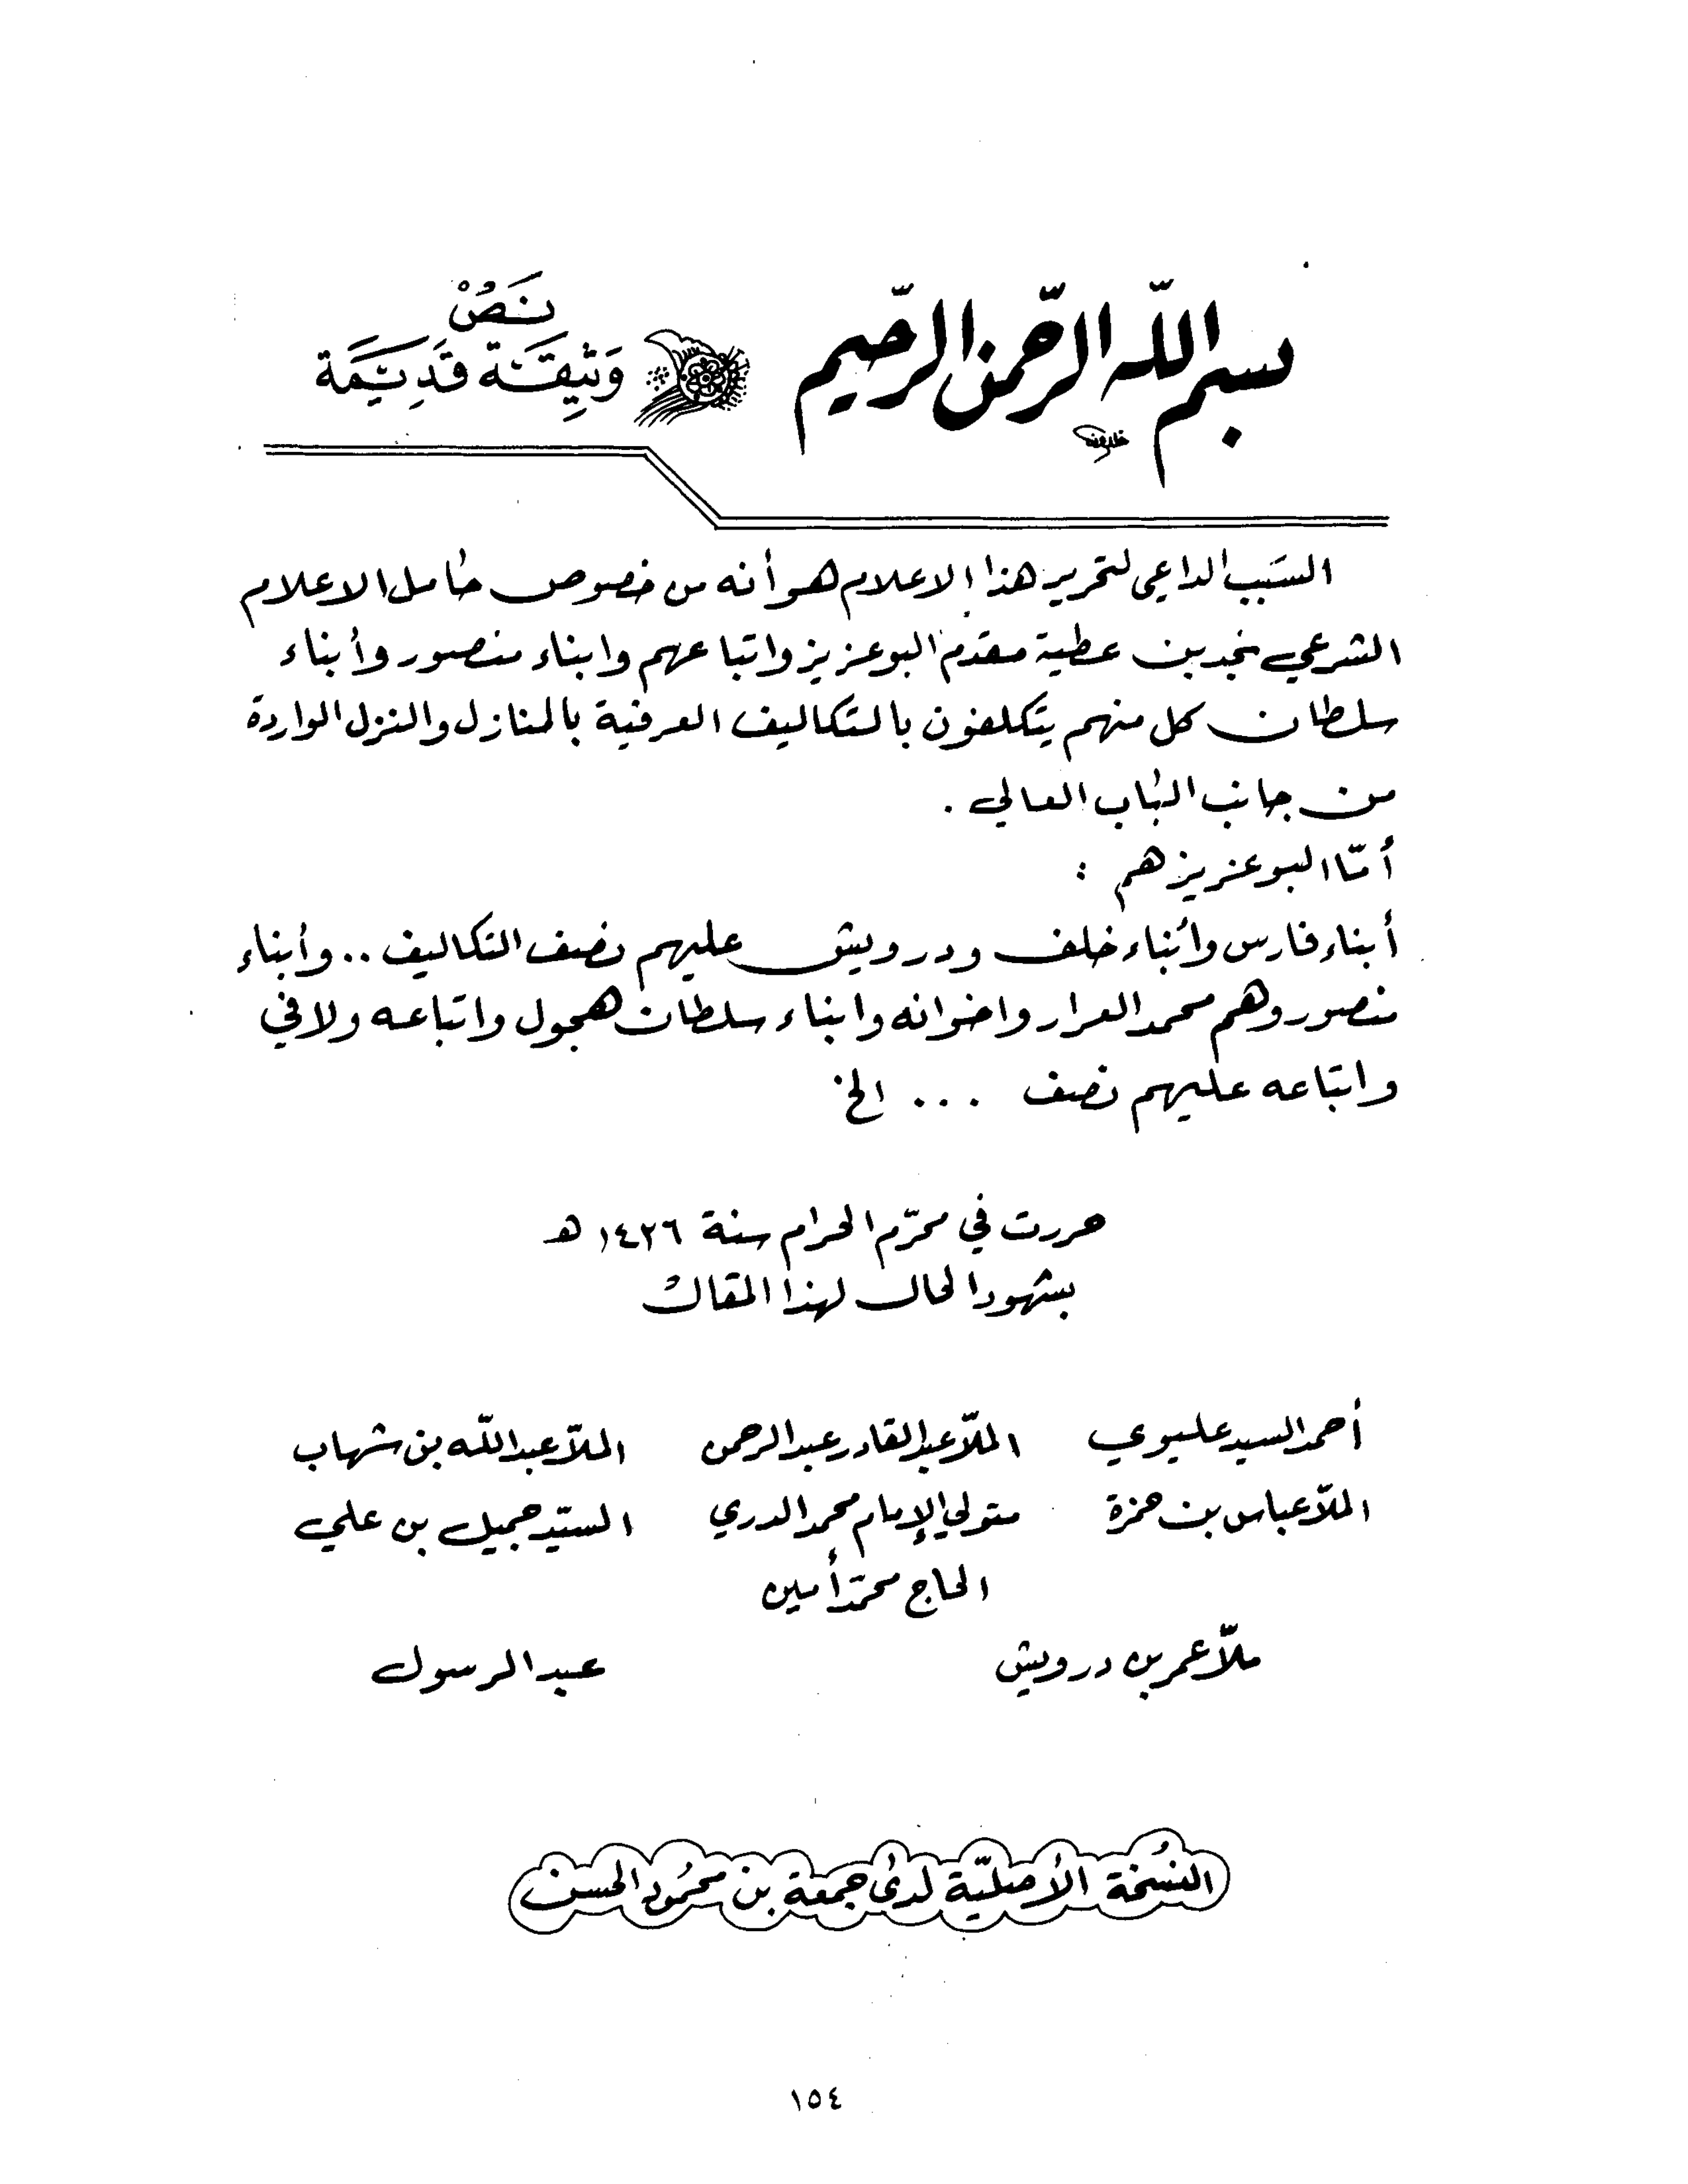 بسم الله الرحمن الرحيم
نَصُّ
وَثِيقَة قَدِيَمَة
السَبب الداعي لتحرير هذا الاعلام هو أنه من خصوص حامل الاعلام
الشرعي نجد بن عطية مقدم البوعزيز واتباعهم وابناء منصور وأبناء
سلطان كل منهم يتكلفون بالتكاليف العرفية بالمنازل والنزل الواردة
من جانب الباب العالي .
أمّا البوعزيز هم :
أبناء فارس وأبناء خلف ودرويش عليهم نصف التكاليف .. وأبناء
منصور وهم محمد العرار واخوانه وابناء سلطان هجول واتباعه ولافي
واتباعه عليهم نصف ... الخ
حررت في محرّم الحرام سنة ١٤٢٦ هـ
بشهود الحال لهذا المقال
أحمد السيد عليوي الملّا عبد القادر عبد الرحمن الملّا عبد الله بن شهاب
الملّا عباس بن حمزة متولي الإمام محمد الدري السيّد جميل بن علي
الحاج محمّد أمين
ملّا عمر بن درويش عبد الرسول
النسُخة الأصليّة لدى جمعة بن محمُود الحسن
١٥٤